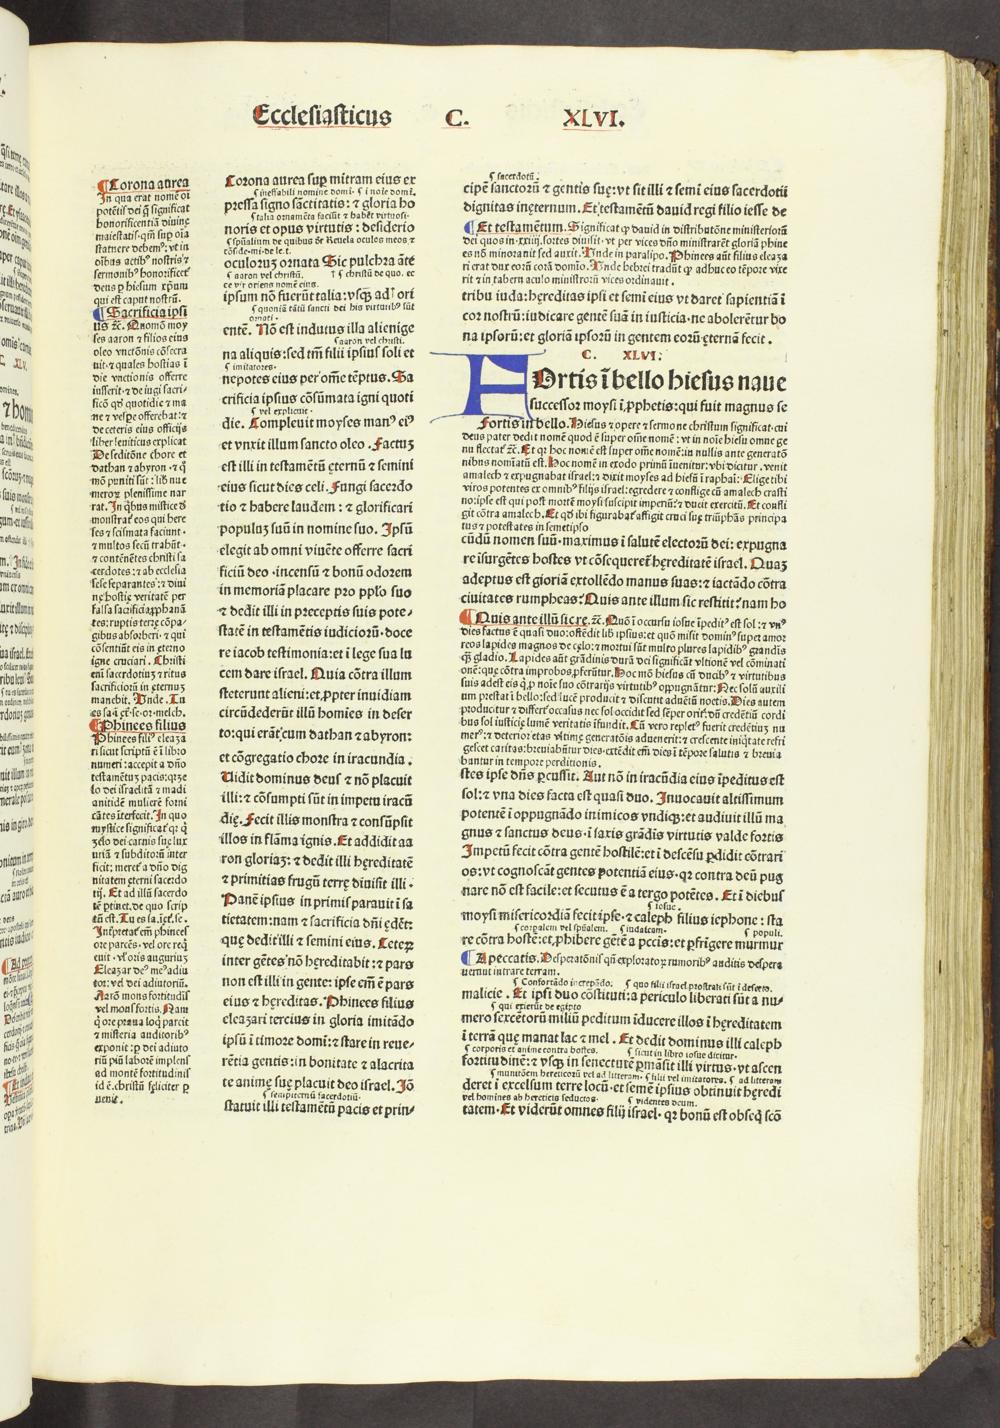 Ecclesiasticus C. XLVI.
¶Corona aurea
In qua erat nomē oī
potētis dei q̄ significat
honorificentiā diuinę
maiestatis· qm̄ sup oīa
sermonibꝰ honorificet᷑
deus ꝑ hiesum xp̄um
qui est caput nostrū.
¶Sacrificia ipsi
us ⁊c̄. Quomō moy
ses aaron ⁊ filios eius
oleo vnctionis cōsecra
uit· ⁊ quales hostias ī
die vnctionis offerre
iusserit· ⁊ de iugi sacri-
ficō qḋ quotidie ⁊ ma
ne ⁊ vespe offerebat᷑: ⁊
de ceteris eius officijs
liber leuiticus explicat
De seditōne chore et
dathan ⁊ abyron· ⁊ q̄
mō puniti sūt: lib᷑ nue
meroꝝ plenissime nar
rat. In qbus mistice ḋ
monstrat᷑ eos qui here
ses ⁊ scismata faciunt·
⁊ multos secū trahūt·
⁊ contēnētes christi sa
cerdotes: ⁊ ab ecclesia
sese separantes: ⁊ diui
nę hostię veritatē per
falsa sacrificia ꝓphanā
tes: ruptis terrę cōpa-
gibus absorberi· ⁊ qui
cōsentiūt eis in ęterno
igne cruciari. Christi
em̄ sacerdotiū ⁊ ritus
sacrificiorū in ęternuꝫ
manebit. Vnde. Tu
es sa·ī ęt᷑·se·or·melch.
¶Phinees filius
Phinees filiꝰ eleaza
ri sicut scriptū ē ī libro
numeri: accepit a dn̄o
testamētuꝫ pacis: qꝫ ze
lo dei israelitā ⁊ madi
anitidē mulierē forni
cātes īterfecit. In quo
mystice significat᷑ qꝛ q̄
zelo dei carnis suę lux
uriā ⁊ subditorū inter
ficit: meret᷑ a dn̄o dig
nitatem ęterni sacerdo
tij. Et ad illū sacerdo
tē ꝑtinet· de quo scrip
tū est. Tu es sa.ī ęt᷑.se.
Interpretat᷑ em̄ phinees
ore parcēs· vel ore req
euit· vꝉ oris auguriuꝫ
Eleazar deꝰ meꝰ adiu
tor: vel dei adiutoriū.
Aarō mons fortitudīs
vel mons fortis. Nam
q ore praua loq̄ parcit
⁊ misteria auditoribꝰ
exponit: ꝑ dei adiuto
riū piū laborē implens
ad montē fortitudinis
id ē· christū fęliciter ꝑ
uenit.
Corona aurea suꝑ mitram eiusex
ineffabili nomine domī· ī noīe domī.
pressa signo sāctitatis: ⁊ gloria ho
talia ornamēta faciūt ⁊ habēt virtuosi·
noris et opus virtutis: desiderio
spūalium de quibus dr̄ Reuela oculos meos ⁊
cōside·mi·de le.t.
oculoruꝫ ornata Sic pulchra āte
aaron vel christū. christū de quo. ec
ce vir oriens nomē eius.
ipsum nō fuerūt talia: vsqꝫ ad ori
quoniā tātū sancti dei his virtutibꝰ sūt
ornati·
entē. Nō est indutus illa alienige
aaron vel christi.
na aliquis: sed tm̄ filii ipsius soli et
imitatores·
nepotes eius per om̄e tēpus. Sa
crificia ipsius cōsūmata igni quoti
vel explicuit·
die. Compleuit moyses manꝰ eiꝰ
et vnxit illum sancto oleo. Factuꝫ
est illi in testamētū ęternū ⁊ semini
eius sicut dies celi. Fungi sacerdo
tio ⁊ habere laudem: ⁊ glorificari
populuꝫ suū in nomine suo. Ipsū
elegit ab omni viuēte offerre sacri
ficiū deo· incensū ⁊ bonū odorem
in memoriā placare pro pp̄lo suo
⁊ dedit illi in preceptis suis pote-
statē in testamētis iudiciorū· doce
re iacob testimonia: et ī lege sua lu
cem dare israel. Quia cōtra illum
steterunt alieni: et ꝓpter inuidiam
circūdederūt illū homīes in deser
to: qui erāt cum dathan ⁊ abyron:
et cōgregatio chore in iracundia.
Vidit dominus deus ⁊ nō placuit
illi: ⁊ cōsumpti sūt in impetu iracū
dię. Fecit illis monstra ⁊ consūpsit
illos in flāma ignis. Et addidit aa
ron gloriaꝫ: ⁊ dedit illi hereditatē
⁊ primitias frugū terrę diuisit illi.
Panē ipsius in primis parauit ī sa
tietatem: nam ⁊ sacrificia dn̄i ędēt:
quę dedit illi ⁊ semini eius. Ceteꝝ
inter gētes nō hęreditabit: ⁊ pars
non est illi in gente: ipse em̄ ē pars
eius ⁊ hęreditas. Phinees filius
eleazari tercius in gloria imitādo
ipsū ī timore domī: ⁊ stare in reue-
rētia gentis: in bonitate ⁊ alacrita
te animę suę placuit deo israel. Iō
sempiternū sacerdotiū·
statuit illi testamētū pacis et prin-
sacerdotū.
cipē sanctorū ⁊ gentis suę: vt sit illi ⁊ semī eius sacerdotii
dignitas inęternum. Et testamētū dauid regi filio iesse de
¶Et testamētum. Significat ꝙ dauid in distributōne ministeriorū
dei quos in·xxiiij.sortes diuisit· vt per vices dn̄o ministrarēt gloriā phine
es nō minorauit sed auxit. Vnde in paralipo. Phinees aūt filius eleaza
ri erat dux eorū corā domīo. Vnde hebrei tradūt ꝙ adhuc eo tēpore vixe
rit ⁊ in tabernaculo ministrorū vices ordinauit.
tribu iuda: hęreditas ipsi et semī eius vt daret sapientiā ī
cor nostrū: iudicare gentē suā in iusticia· ne abolerētur bo
na ipsorū: et gloriā ipsorū in gentem eorū ęternā fecit.
C. XLVI.
FOrtis ī bello hiesus naue
successor moysi ī ꝓphetis: qui fuit magnus se
Fortis in bello. Hiesus ⁊ opere ⁊ sermone christum significat· cui
deus pater dedit nomē quod ē super om̄e nomē: vt in noīe hiesu omne ge
nu flectat᷑ ⁊c̄. Et qꝛ hoc nomē est super om̄e nomē: in nullis ante generatō
nibus nomīatū est. Hoc nomē in exodo primū īuenitur: vbi dicitur. venit
amalech ⁊ expugnabat israel: ⁊ dixit moyses ad hiesū ī raphaī: Elige tibi
viros potentes ex omnibꝰ filijs israel: egredere ⁊ conflige cū amalech crasti
no: ipse est qui post mortē moysi suscipit imperiū: ⁊ ducit exercitū. Et confli
git cōtra amalech. Et qḋ ibi figurabat᷑ affigit cruci suę triūphās principa
tus ⁊ potestates in semetipso
cūdū nomen suū· maximus ī salutē electorū dei: expugna
re īsurgētes hostes vt cōsequeret᷑ hęreditatē israel. Quaꝫ
adeptus est gloriā extollēdo manus suas: ⁊ iactādo cōtra
ciuitates rumpheas: Quis ante illum sic restitit: nam ho
¶Quis ante illū sic re. ⁊c̄. Quō ī occursu iosue īpedit᷑ est sol: ⁊ vnꝰ
dies factus ē quasi duo: ostēdit lib᷑ ipsius: et quō misit dominꝰ super amor
reos lapides magnos de cęlo: ⁊ mortui sūt multo plures lapidibꝰ grandīs
qꝫ gladio. Lapides aūt grādinis durā dei significāt vltionē vel cōminati
onē: quę cōtra improbos ꝓferūtur. Hoc mō hiesus cū ducibꝰ ⁊ virtutibus
suis adest eis q̄ ꝓ noīe suo cōtrarijs virtutibꝰ oppugnātur: Nec solū auxili
um prestat ī bello: sed lucē producit ⁊ discutit aduētū noctis. Dies autem
producitur ⁊ differt᷑ occasus nec sol occidit sed semper orit᷑: dū credētiū cordi
bus sol iusticię lumē veritatis īfundit. Cū vero repletꝰ fuerit credētiuꝫ nu
merꝰ: ⁊ deterior ętas vltimę generatōis aduenerit: ⁊ crescente iniqtate refri
gescet caritas: breuiabūtur dies· extēdit em̄ dies ī tēpore salutis ⁊ breuia
bantur in tempore perditionis.
stes ipse dn̄s ꝑcussit. Aut nō in iracūdia eius īpeditus est
sol: ⁊ vna dies facta est quasi duo. Inuocauit altissimum
potentē ī oppugnādo inimicos vndiqꝫ: et audiuit illū ma
gnus ⁊ sanctus deus· ī saxis grādīs virtutis valde fortis
Impetū fecit cōtra gentē hostilē: et ī descēsu ꝑdidit cōtrari
os: vt cognoscāt gentes potentiā eius· qꝛ contra deū pug
nare nō est facile: et secutus ē a tergo potētes. Et ī diebus
iosue.
moysi misericordiā fecit ipse· ⁊ caleph filius iephone: sta
corꝑalem vel spūalem. iudaicam. populi.
re cōtra hostē: et ꝓhibere gētē a pccīs: et ꝑfrigere murmur
¶A peccatis. Desperatōnis quā exploratoꝝ rumoribꝰ auditis despera
uerunt intrare terram.
Confortādo increpādo. quo filii israel prostrati sūt ī deserto.
malicie. Et ipsi duo cōstituti: a periculo liberati sūt a nu-
qui exierūt de egipto
mero sexcētorū miliū peditum īducere illos ī hęreditatem
ī terrā quę manat lac ⁊ mel. Et dedit dominus illi caleph
corporis et anime contra hostes. sicut in libro iosue dicitur.
fortitudinē: ⁊ vsqꝫ in senectutē ꝑmāsit illi virtus· vt ascen
munitōem hereticorū vel ad litteram· filii vel imitatores. ad litteram
deret ī excelsum terre locū· et semē ipsius obtinuit hęredi
vel homines ab hereticis seductos· videntes deum.
tatem· Et viderūt omnes filij israel· qꝛ bonū est obseq̄ scō